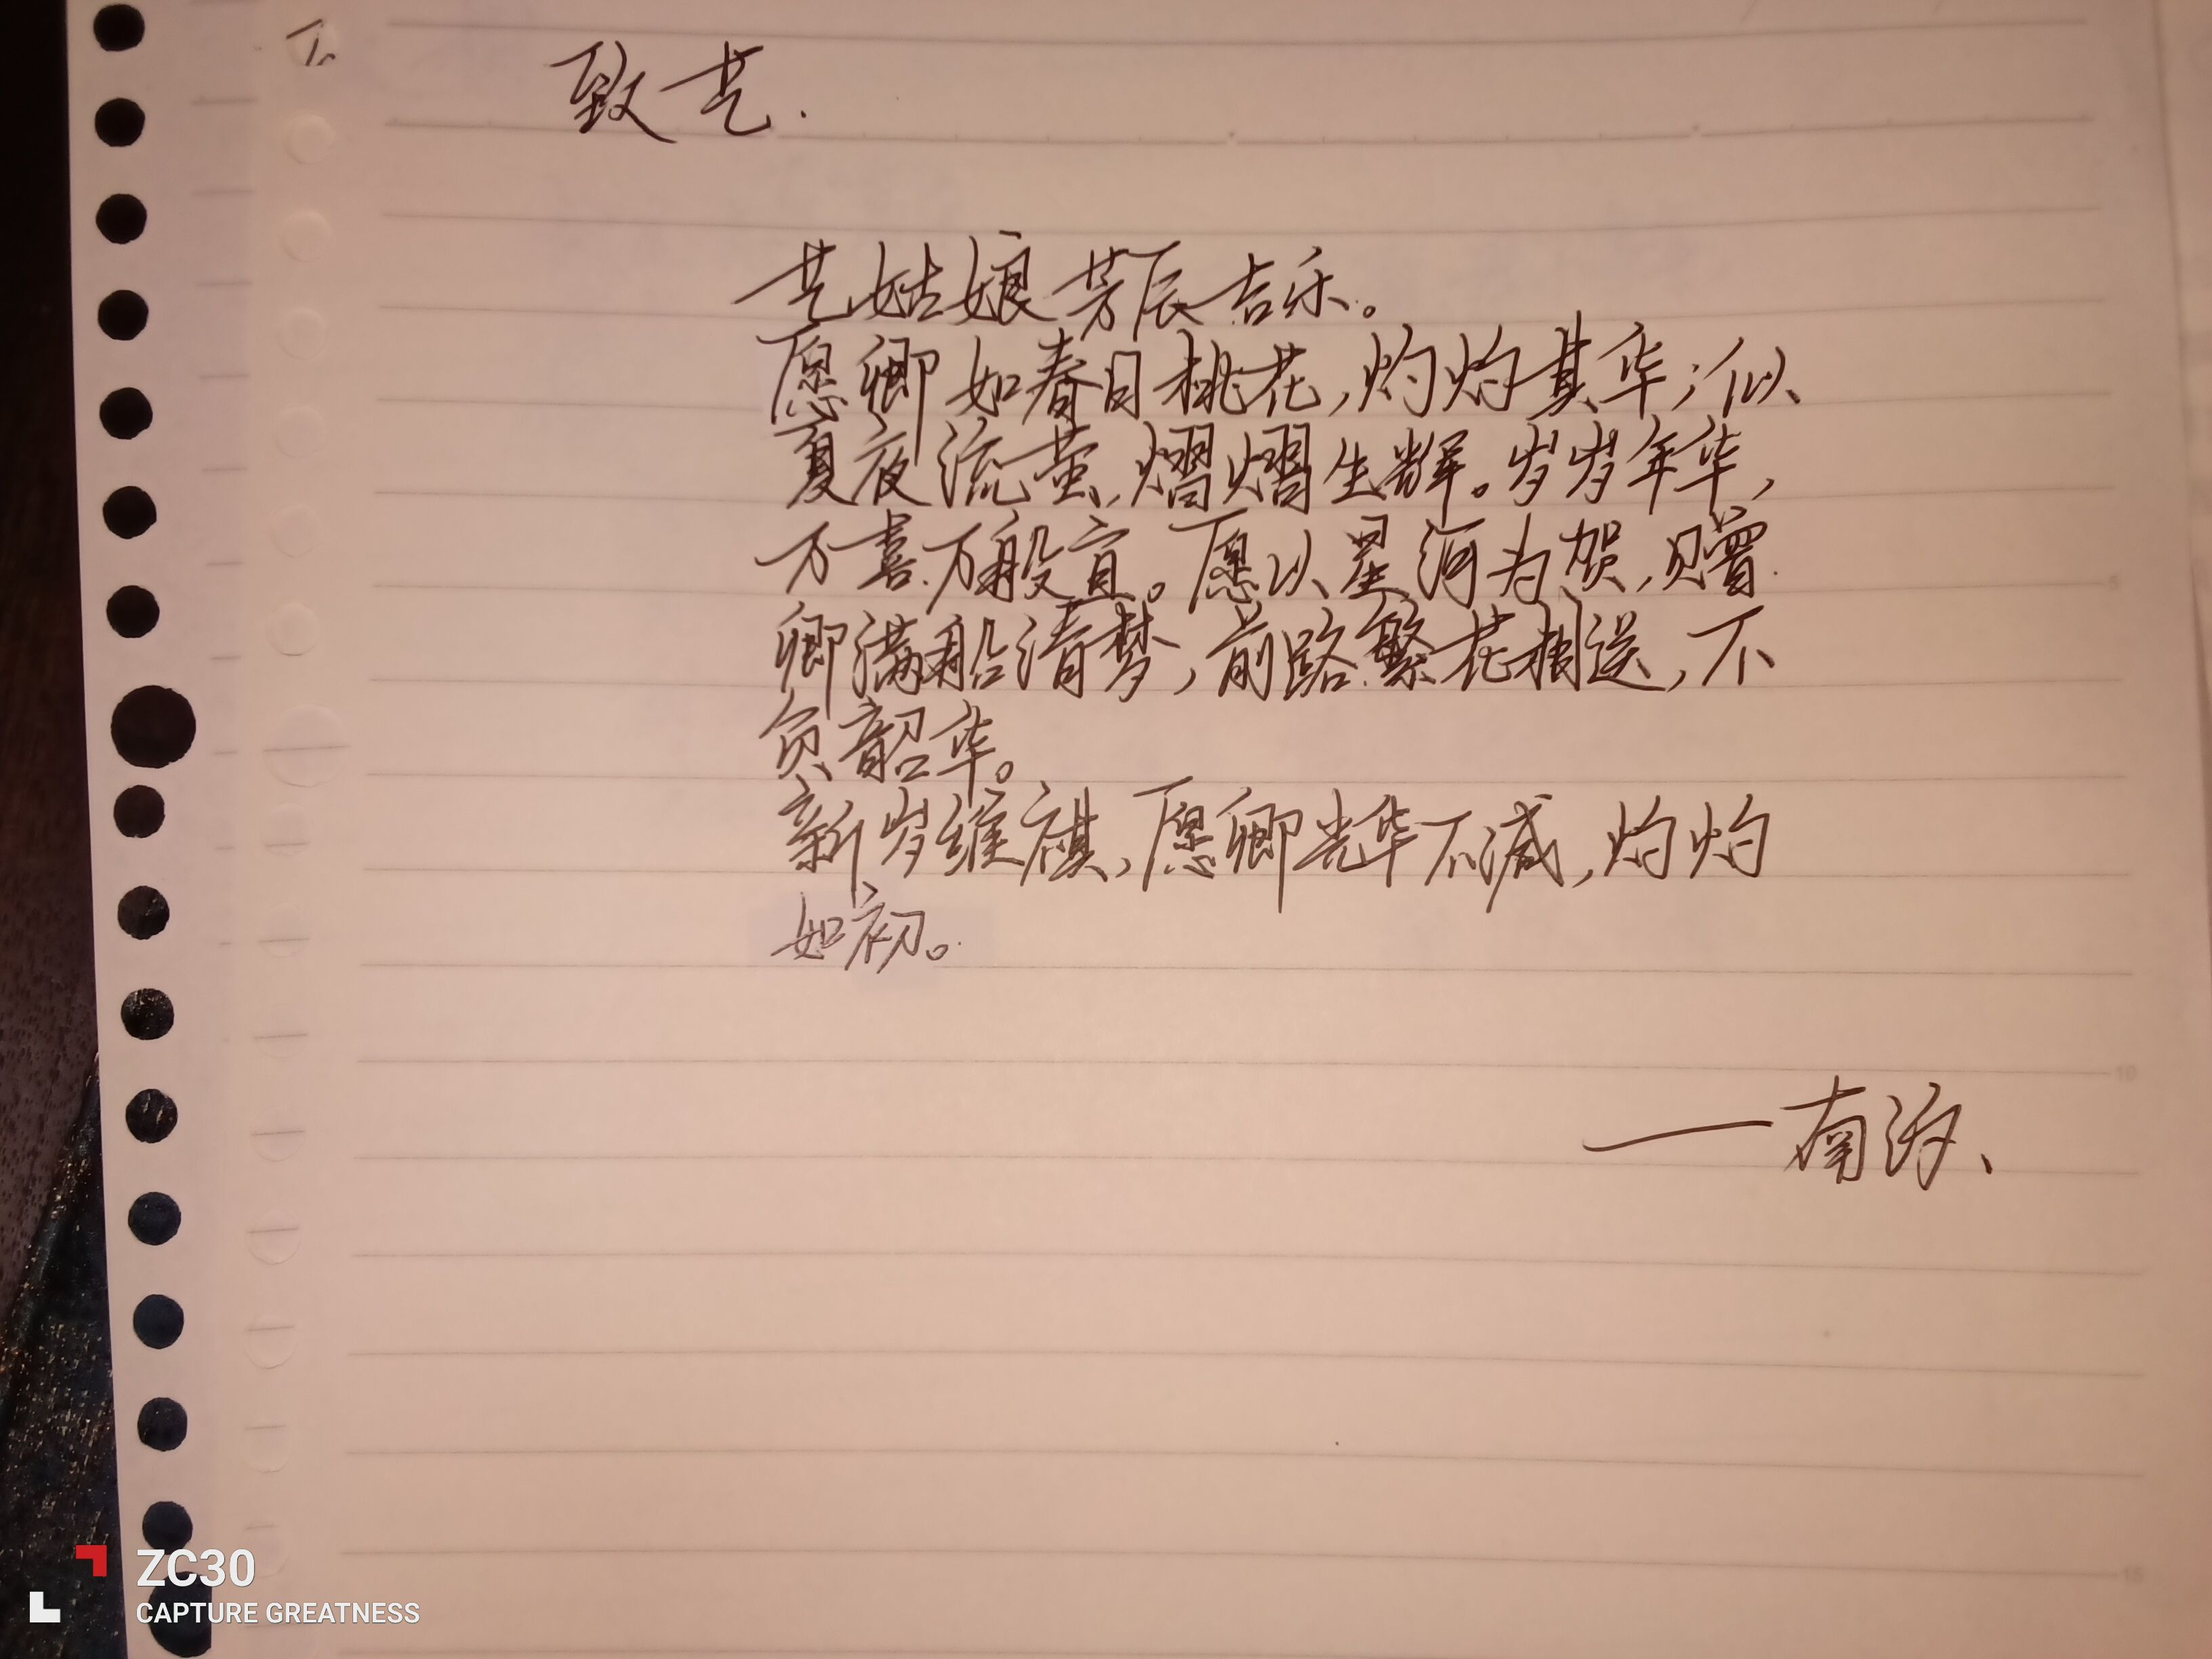 致艺.
艺姑娘芳辰吉乐。
愿卿如春日桃花,灼灼其华;似
夏夜流萤,熠熠生辉。岁岁年华,
万喜万般宜。愿以星河为贺,赠
卿满船清梦,前路繁花相送,不
负韶华。
新岁维祺,愿卿光华不减,灼灼
如初。
——南
5
10
15
ZC30
CAPTURE GREATNESS